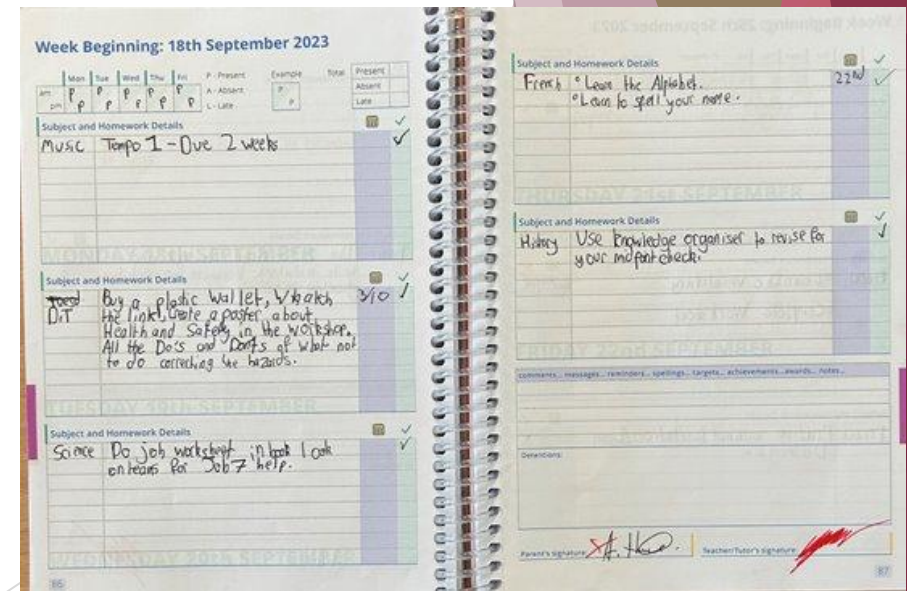 Week Beginning: 18th September 2023
Mon Tue Wed Thu Fri
am P P P P P
pm P P P P P
P - Present
A - Absent
L - Late
Example
P
P
Total
Present
Absent
Late
Subject and Homework Details
Music Tempo 1 - Due 2 weeks
MONDAY 18TH SEPTEMBER
Subject and Homework Details
Tuesd Buy a plastic wallet, Whatch 3/10
D.T the link, create a poster about
Health and Safety in the workshop.
All the Do's and Dont's of what not
to do correcting the hazards.
TUESDAY 19TH SEPTEMBER
Subject and Homework Details
Science Do job worksheet in book Look
on teams for Job 7 help.
WEDNESDAY 20TH SEPTEMBER
86
Week Beginning: 25th September 2023
Subject and Homework Details
French Learn the Alphabet. 22nd
Learn to spell your name.
THURSDAY 21ST SEPTEMBER
Subject and Homework Details
History Use knowledge organiser to revise for
your midpoint check.
FRIDAY 22ND SEPTEMBER
comments... messages... reminders... spellings... targets... achievements... awards... notes...
Detentions:
Parent's signature:
Teacher/Tutor's signature:
87